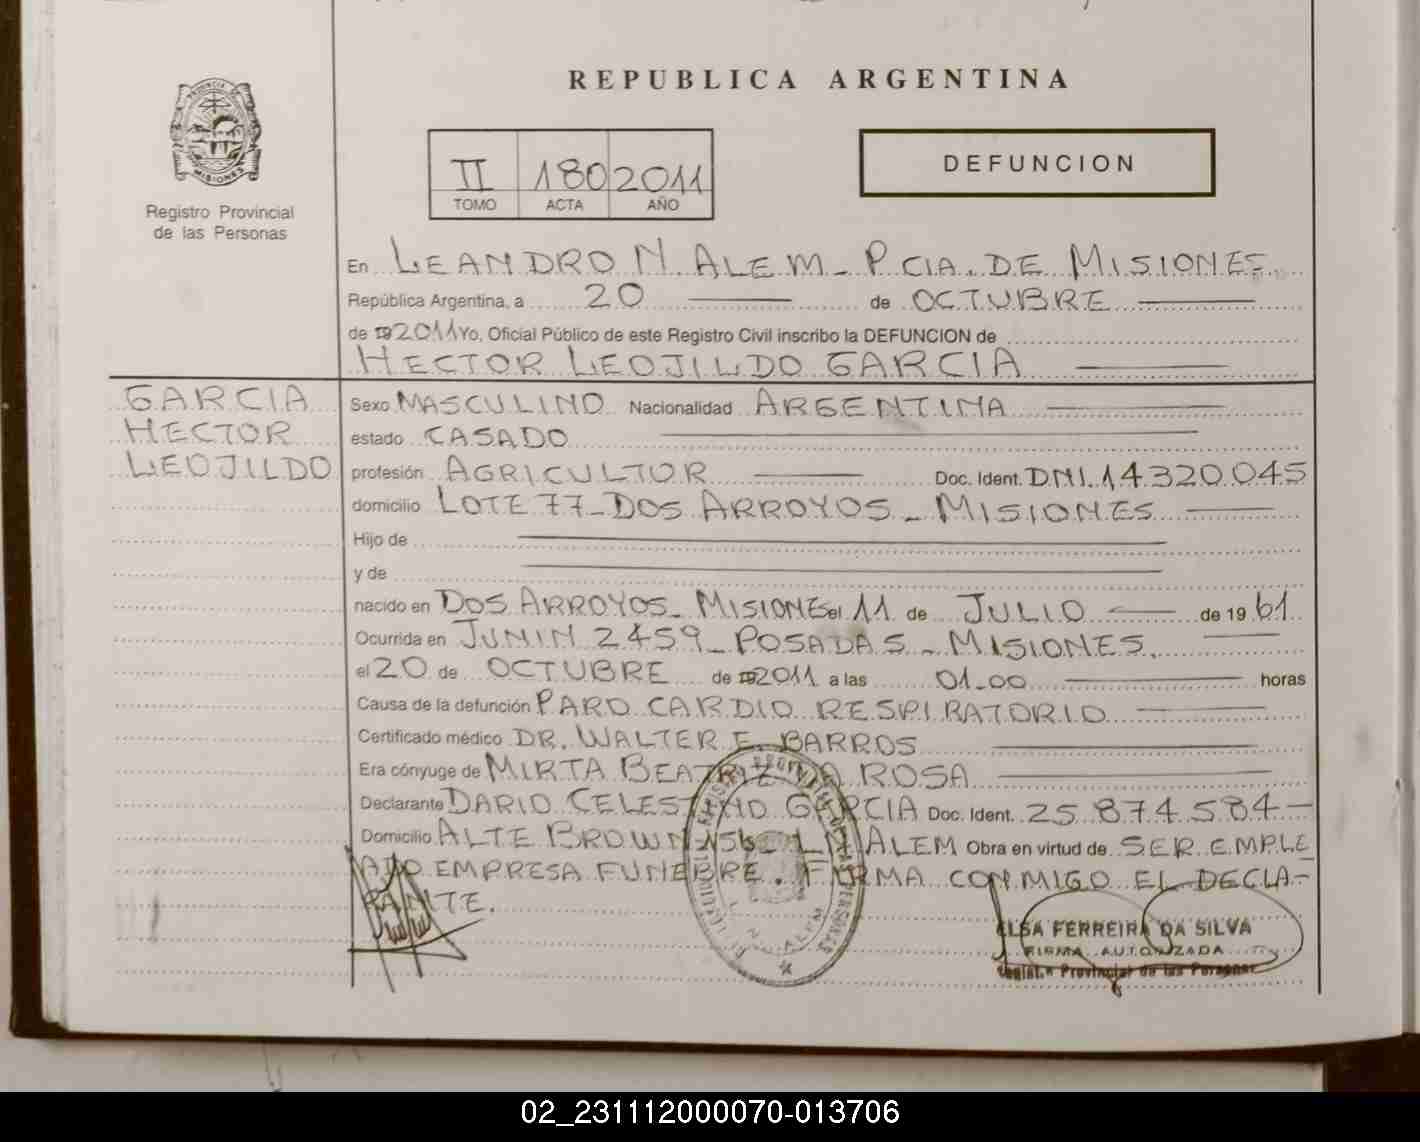 REPUBLICA ARGENTINA
PROVINCIA DE
MISIONES
Registro Provincial
de las Personas
II 180 2011
TOMO ACTA AÑO
DEFUNCION
En LEANDRO N. ALEM - PCIA. DE MISIONES
República Argentina, a 20 de OCTUBRE
de 19 2011 Yo, Oficial Público de este Registro Civil inscribo la DEFUNCION de
HECTOR LEOJILDO GARCIA
GARCIA
HECTOR
LEOJILDO
Sexo MASCULINO Nacionalidad ARGENTINA
estado CASADO
profesión AGRICULTOR Doc. Ident. DNI. 14.320.045
domicilio LOTE 77 - DOS ARROYOS - MISIONES
Hijo de
y de
nacido en DOS ARROYOS - MISIONES el 11 de JULIO de 19 61
Ocurrida en JUNIN 2459 - POSADAS - MISIONES.
el 20 de OCTUBRE de 19 2011 a las 01.00 horas
Causa de la defunción PARO CARDIO RESPIRATORIO
Certificado médico DR. WALTER E. BARROS
Era cónyuge de MIRTA BEATRIZ DA ROSA
Declarante DARIO CELESTINO GARCIA Doc. Ident. 25.874.584 -
Domicilio ALTE BROWN 156 - L. N. ALEM Obra en virtud de SER EMPLE
ADO EMPRESA FUNEBRE. FIRMA CONMIGO EL DECLA-
RANTE.
ELSA FERREIRA DA SILVA
FIRMA AUTORIZADA
Regist.º Provincial de las Personas
02_231112000070-013706